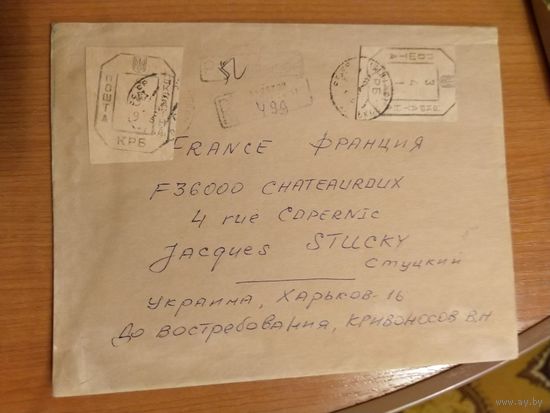 ПОШТА
КРБ
499
ПОШТА
341
КРБ
FRANCE ФРАНЦИЯ
F36000 CHATEAUROUX
4 rue COPERNIC
Jacques STUCKY
Стуцкий
Украина, Харьков-16
До востребования, Кривоносов В.Н
www.ay.by